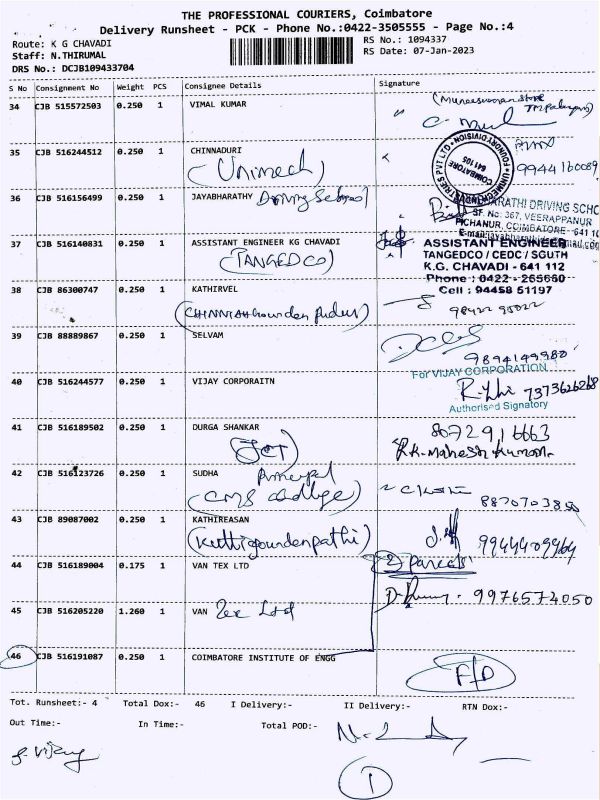 THE PROFESSIONAL COURIERS, Coimbatore
Delivery Runsheet - PCK - Phone No.:0422-3505555 - Page No.:4
Route: K G CHAVADI
RS No.: 1094337
Staff: N.THIRUMAL
RS Date: 07-Jan-2023
DRS No.: DCJB109433704
S No Consignment No Weight PCS Consignee Details Signature
34 CJB 515572503 0.250 1 VIMAL KUMAR
35 CJB 516244512 0.250 1 CHINNADURI
(Unimech)
9944160089
COIMBATORE
641 105
36 CJB 516156499 0.250 1 JAYABHARATHY Driving School
BHARATHI DRIVING SCHO
SF. No: 367, VEERAPPANUR
PICHANUR, COIMBATORE- 641 10
37 CJB 516140831 0.250 1 ASSISTANT ENGINEER KG CHAVADI
(TANGEDCO)
ASSISTANT ENGINEER
TANGEDCO / CEDC / SOUTH
K.G. CHAVADI - 641 112
Phone : 0422 - 265660
Cell : 94458 51197
38 CJB 86300747 0.250 1 KATHIRVEL
39 CJB 88889867 0.250 1 SELVAM
9894149980
40 CJB 516244577 0.250 1 VIJAY CORPORAITN
For VIJAY CORPORATION
7373626268
Authorised Signatory
41 CJB 516189502 0.250 1 DURGA SHANKAR
8072916663
R.K. Mahesh Kumar
42 CJB 516123726 0.250 1 SUDHA Principal
(CMS College)
8870703850
43 CJB 89087002 0.250 1 KATHIREASAN
(Kuttigoundenpathi)
9944409964
44 CJB 516189004 0.175 1 VAN TEX LTD
45 CJB 516205220 1.260 1 VAN Tex Ltd
9976574050
46 CJB 516191087 0.250 1 COIMBATORE INSTITUTE OF ENGG
F/D
Tot. Runsheet:- 4 Total Dox:- 46 I Delivery:- II Delivery:- RTN Dox:-
Out Time:- In Time:- Total POD:-
S. Vijay
1